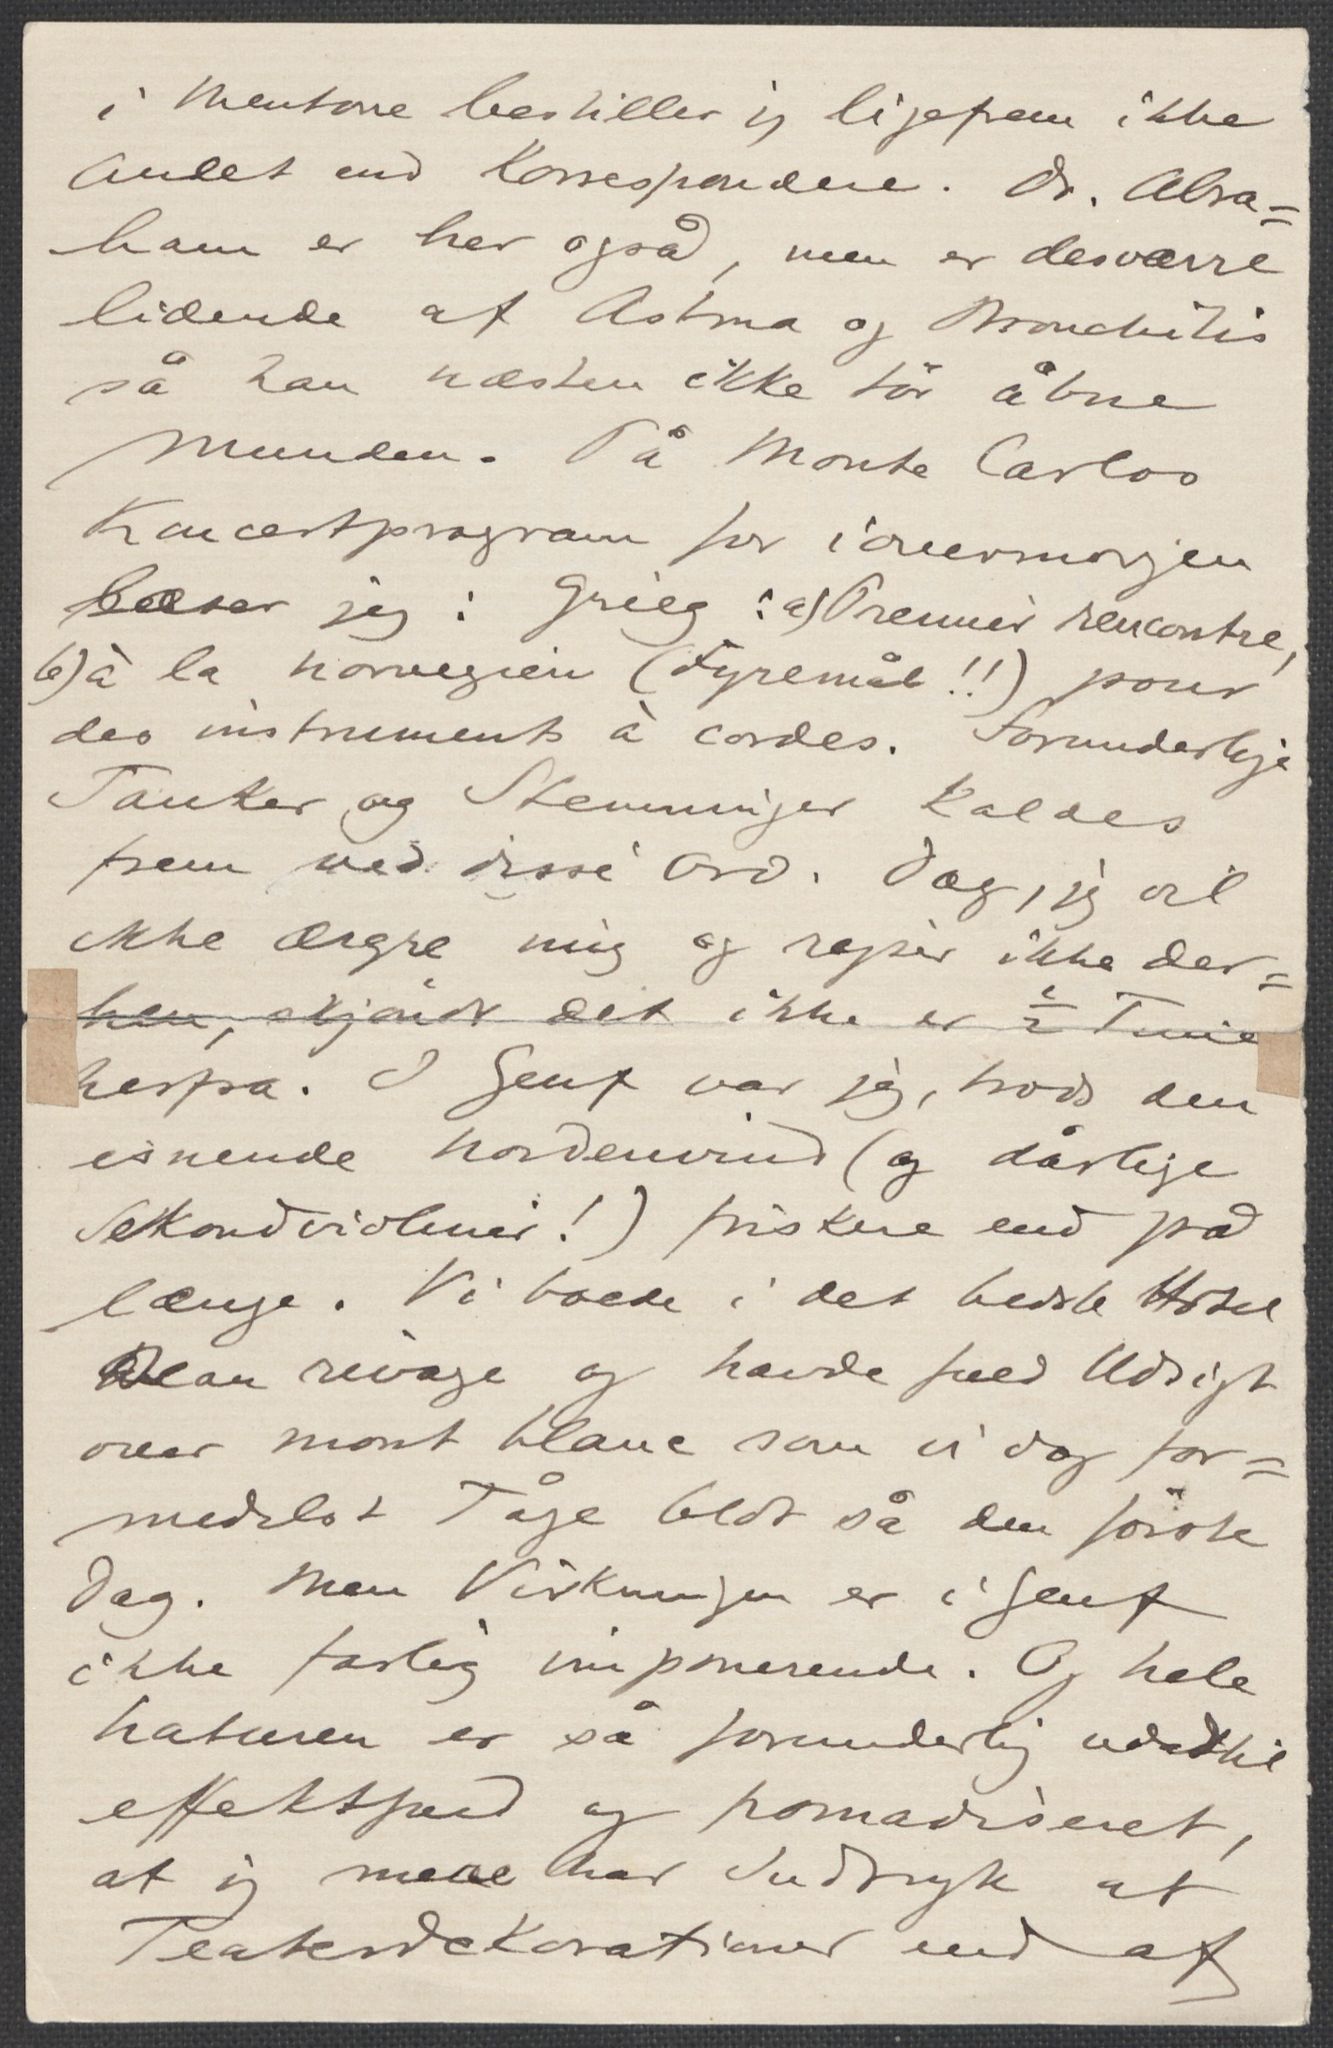 i Mentone bestiller jeg ligefrem ikke
Andet end Korrespondere. Dr. Abra=
ham er her også, men er desværre
lidende af Astma og Bronchitis
så han næsten ikke tör åbne
Munden. På Monte Carlos
Koncertprogram for iovermorgen
læser jeg: Grieg: a) Premier rencontre,
b) à la norvegien (Fyremål!!) pour
des instruments à cordes. Forunderlige
Tanker og Stemninger kaldes
frem ved disse Ord. Dog, jeg vil
ikke ærgre mig og rejser ikke der=
hen, skjöndt det ikke er ½ Time
herfra. I Genf var jeg, trods den
isnende Nordenvind (og dårlige
Sekondvioliner!) friskere end på
længe. Vi boede i det bedste Hotel
Beau rivage og havde fuld Udsigt
over Mont blanc som vi dog for=
medelst Tåge blot så den förste
Dag. Men Virkningen er i Genf
ikke farlig imponerende. Og hele
Naturen er så forunderlig udadtil
effektfuld og pomadiseret,
at jeg mere har Indtryk af
Teaterdekorationer end af